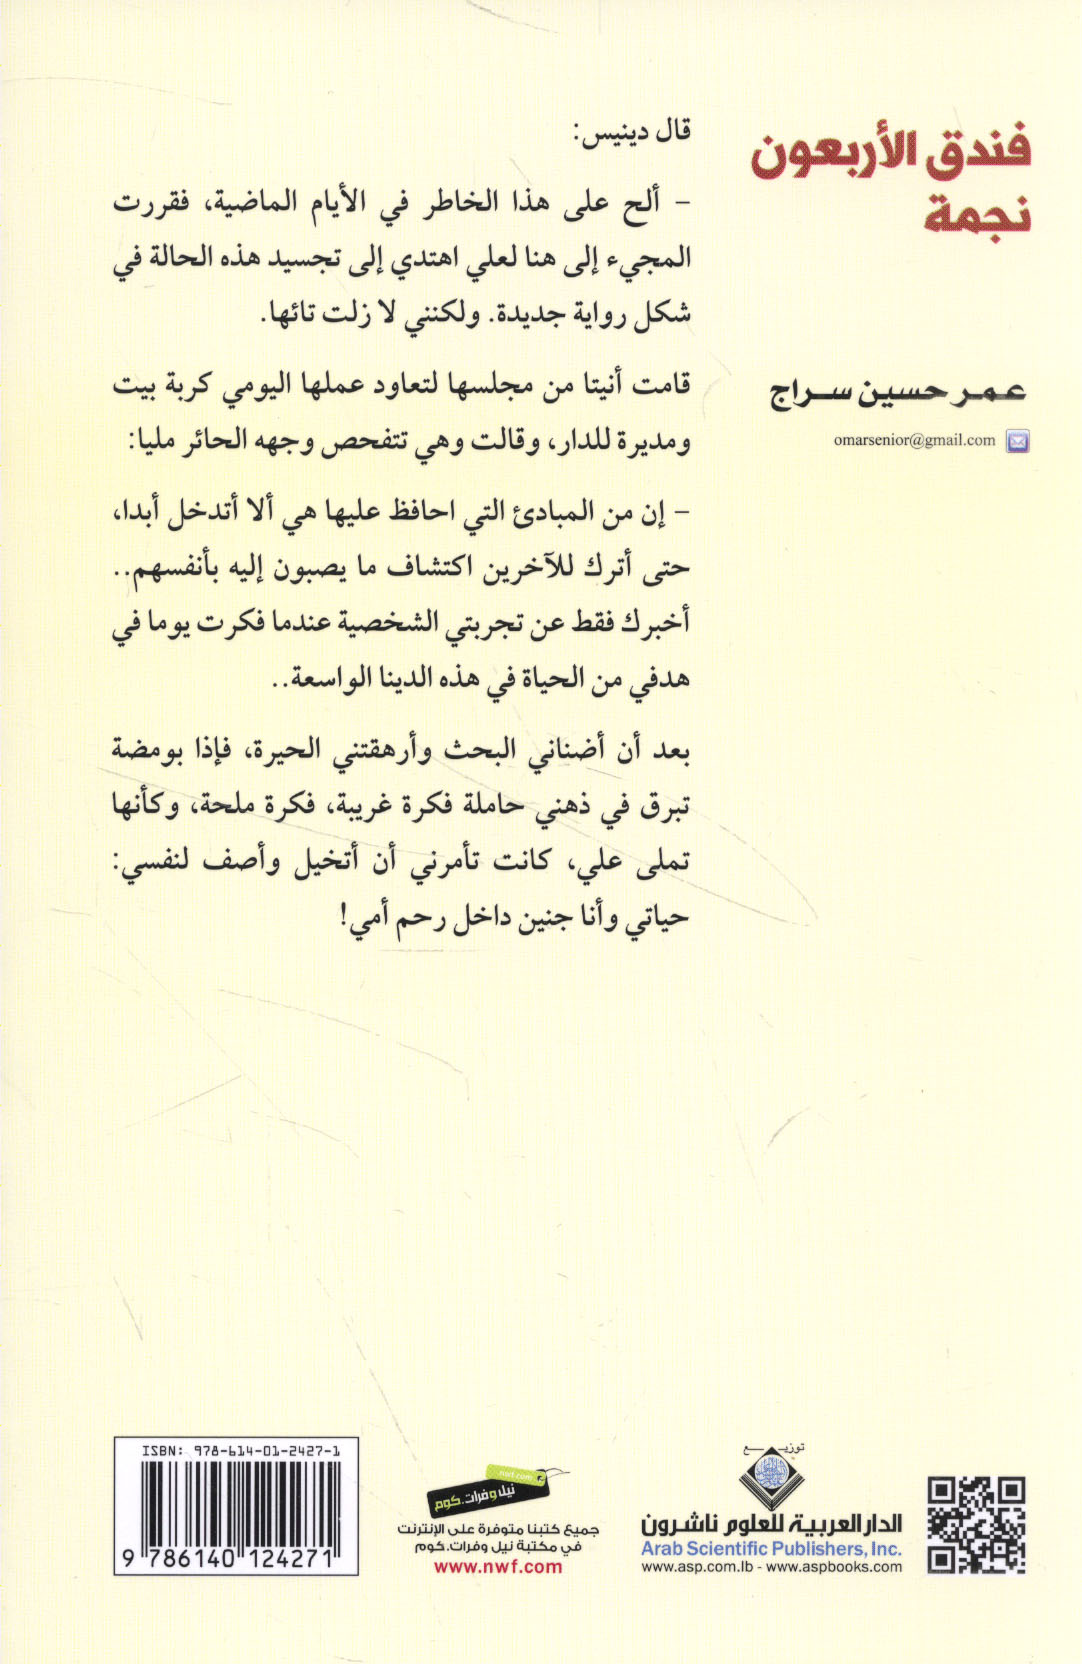 فندق الأربعون
نجمة
عمر حسين سراج
omarsenior@gmail.com
قال دينيس:
- ألح على هذا الخاطر في الأيام الماضية، فقررت
المجيء إلى هنا لعلي اهتدي إلى تجسيد هذه الحالة في
شكل رواية جديدة. ولكنني لا زلت تائها.
قامت أنيتا من مجلسها لتعاود عملها اليومي كربة بيت
ومديرة للدار، وقالت وهي تتفحص وجهه الحائر مليا:
- إن من المبادئ التي احافظ عليها هي ألا أتدخل أبدا،
حتى أترك للآخرين اكتشاف ما يصبون إليه بأنفسهم..
أخبرك فقط عن تجربتي الشخصية عندما فكرت يوما في
هدفي من الحياة في هذه الدينا الواسعة..
بعد أن أضناني البحث وأرهقتني الحيرة، فإذا بومضة
تبرق في ذهني حاملة فكرة غريبة، فكرة ملحة، وكأنها
تملى علي، كانت تأمرني أن أتخيل وأصف لنفسي:
حياتي وأنا جنين داخل رحم أمي!
توزيع
الدار العربية للعلوم ناشرون
Arab Scientific Publishers, Inc.
www.asp.com.lb - www.aspbooks.com
nwf.com
نيل وفرات.كوم
جميع كتبنا متوفرة على الإنترنت
في مكتبة نيل وفرات.كوم
www.nwf.com
ISBN: 978-614-01-2427-1
9 786140 124271